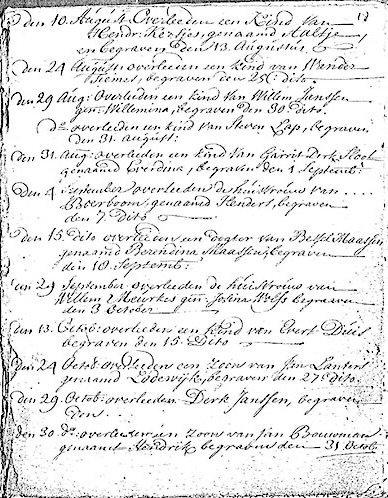 17
Den 10. August: Overleeden een Kind van
Hendr: Kersjes, genaamd Aaltje
en begraven den 13. Augustus
den 24 August: overleeden een kind van Wender
Siemes, begraven den 25: dito.
den 29 Aug: Overleeden een kind van Willem Janssen
gen: Willemina, begraven den 30 dito.
do: overleeden een kind van Steven Las, begraven
den 31. august:
den 31. Aug: overleeden een kind van Garrit Derk
genaamd, begraven den 1 Septemb:
Den 4 September overleeden de huisvrouw van
Boerboom, genaamd Hendert, begraven
den 7 Dito
den 15 Dito overleeden een dogter van Bessel Maassen
genaamd Berendina Maassen, begraven
den 18 Septemb:
den 29 September overleeden de huisvrouw van
Willem Meurkes gen: Josina, begraven
den 3 October
den 13. Octob: overleeden een kind van Evert
begraven den 15 Dito
den 24 Octob: overleeden een Zoons van Jan Lanters
genaamd Lodewijk, begraven den 27 dito.
den 29. Octob: overleeden Derk Janssen, begraven
den
den 30 do: overleeden een Zoons van Jan Bouwman
genaamd Hendrik begraven den 31 Octob: